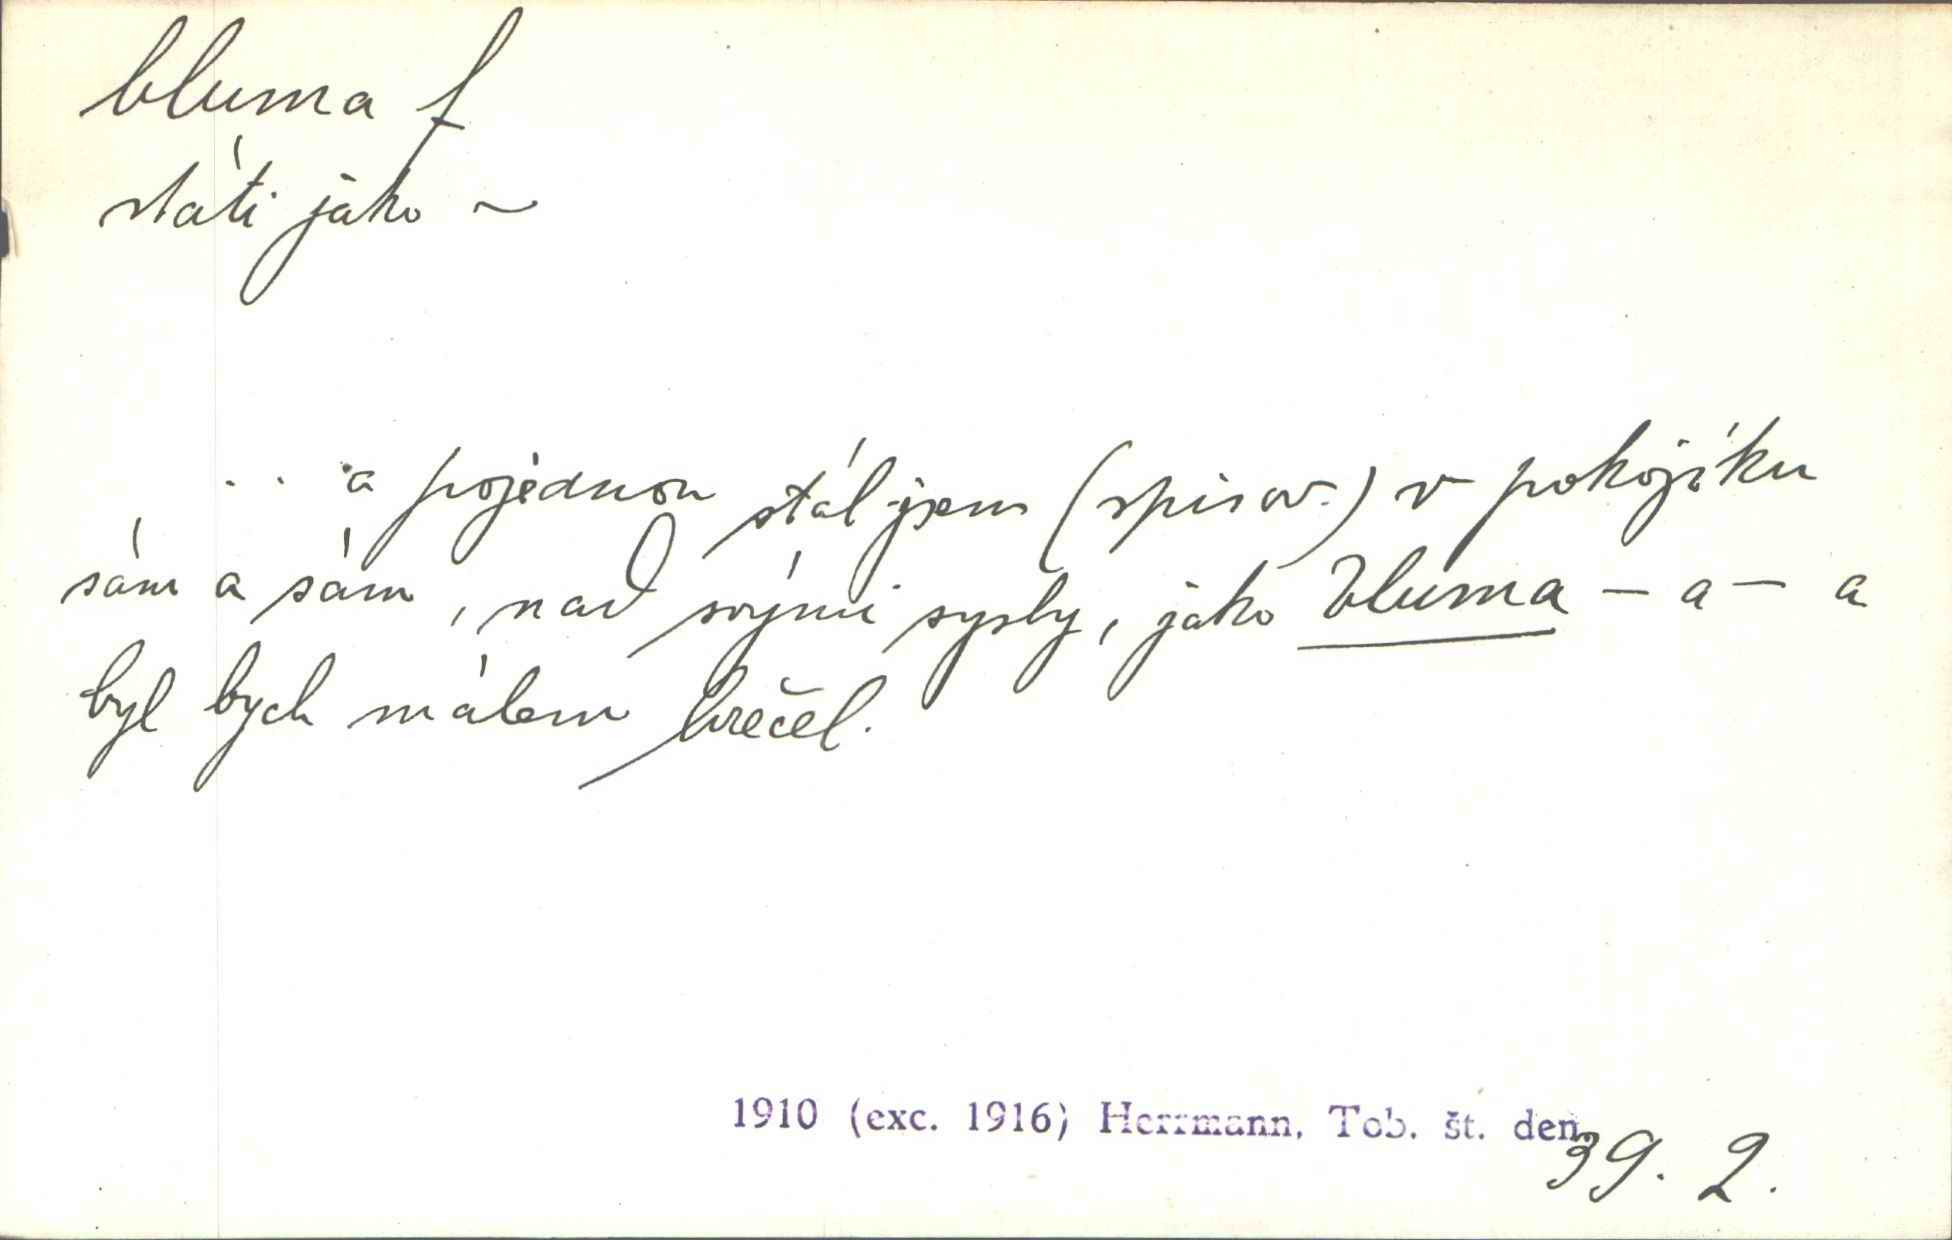 bluma f
státi jako ~
. . a pojednou stál jsem (spisov.) v pokojíku
sám a sám, nad svými sysly, jako bluma – a – a
byl bych málem brečel.
1910 (exc. 1916) Herrmann, Tob. št. den.
39. 2.